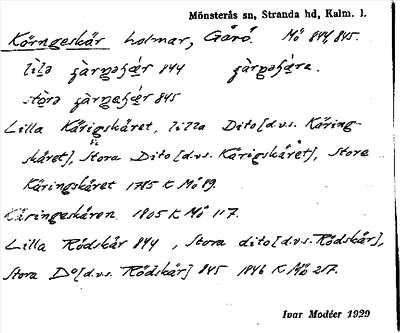 Mönsterås sn, Stranda hd, Kalm. l.
Kärngeskär holmar, Gårö. Mö 844, 845.
844
845
Lilla Käringskäret, lilla Dito [d.v.s. Käring-
skäret], Stora Dito [d.v.s. Käringskäret], Store
Käringskäret 1785 K Mö 89.
Käringeskären 1805 K Mö 117.
Lilla Rödskär 844, Stora dito [d.v.s. Rödskär],
Stora Do [d.v.s. Rödskär] 845 1846 K Mö 257.
Ivar Modéer 1929